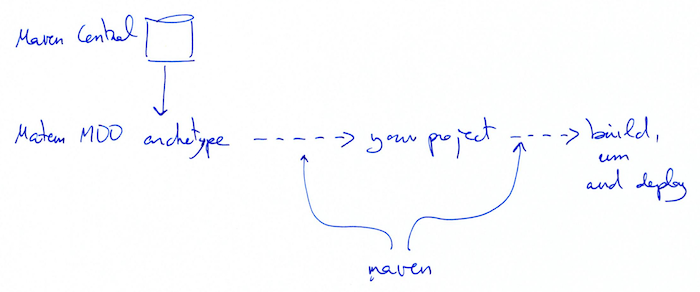 Maven Central
Matem MDD archetype
your project
build,
run
and deploy
maven